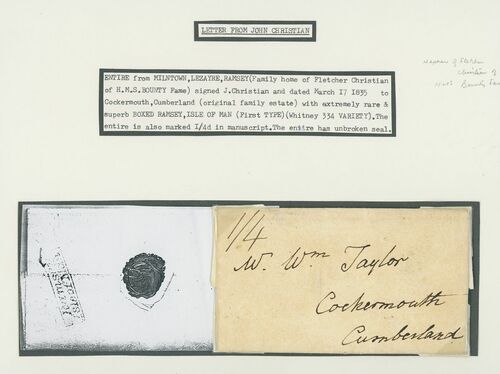 LETTER FROM JOHN CHRISTIAN
ENTIRE from MILNTOWN,LEZAYRE,RAMSEY(Family home of Fletcher Christian
of H.M.S.BOUNTY Fame) signed J.Christian and dated March 17 1835 to
Cockermouth,Cumberland (original family estate) with extremely rare &
superb BOXED RAMSEY,ISLE OF MAN (First TYPE)(Whitney 334 VARIETY).The
entire is also marked 1/4d in manuscript.The entire has unbroken seal.
Nephew of Fletcher
Christian of
HMS Bounty Fame
1/4
Mr. Wm Taylor
Cockermouth
Cumberland